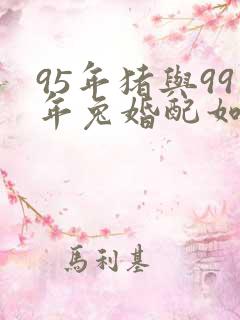 95年猪與99
年兔婚配如
馬利基